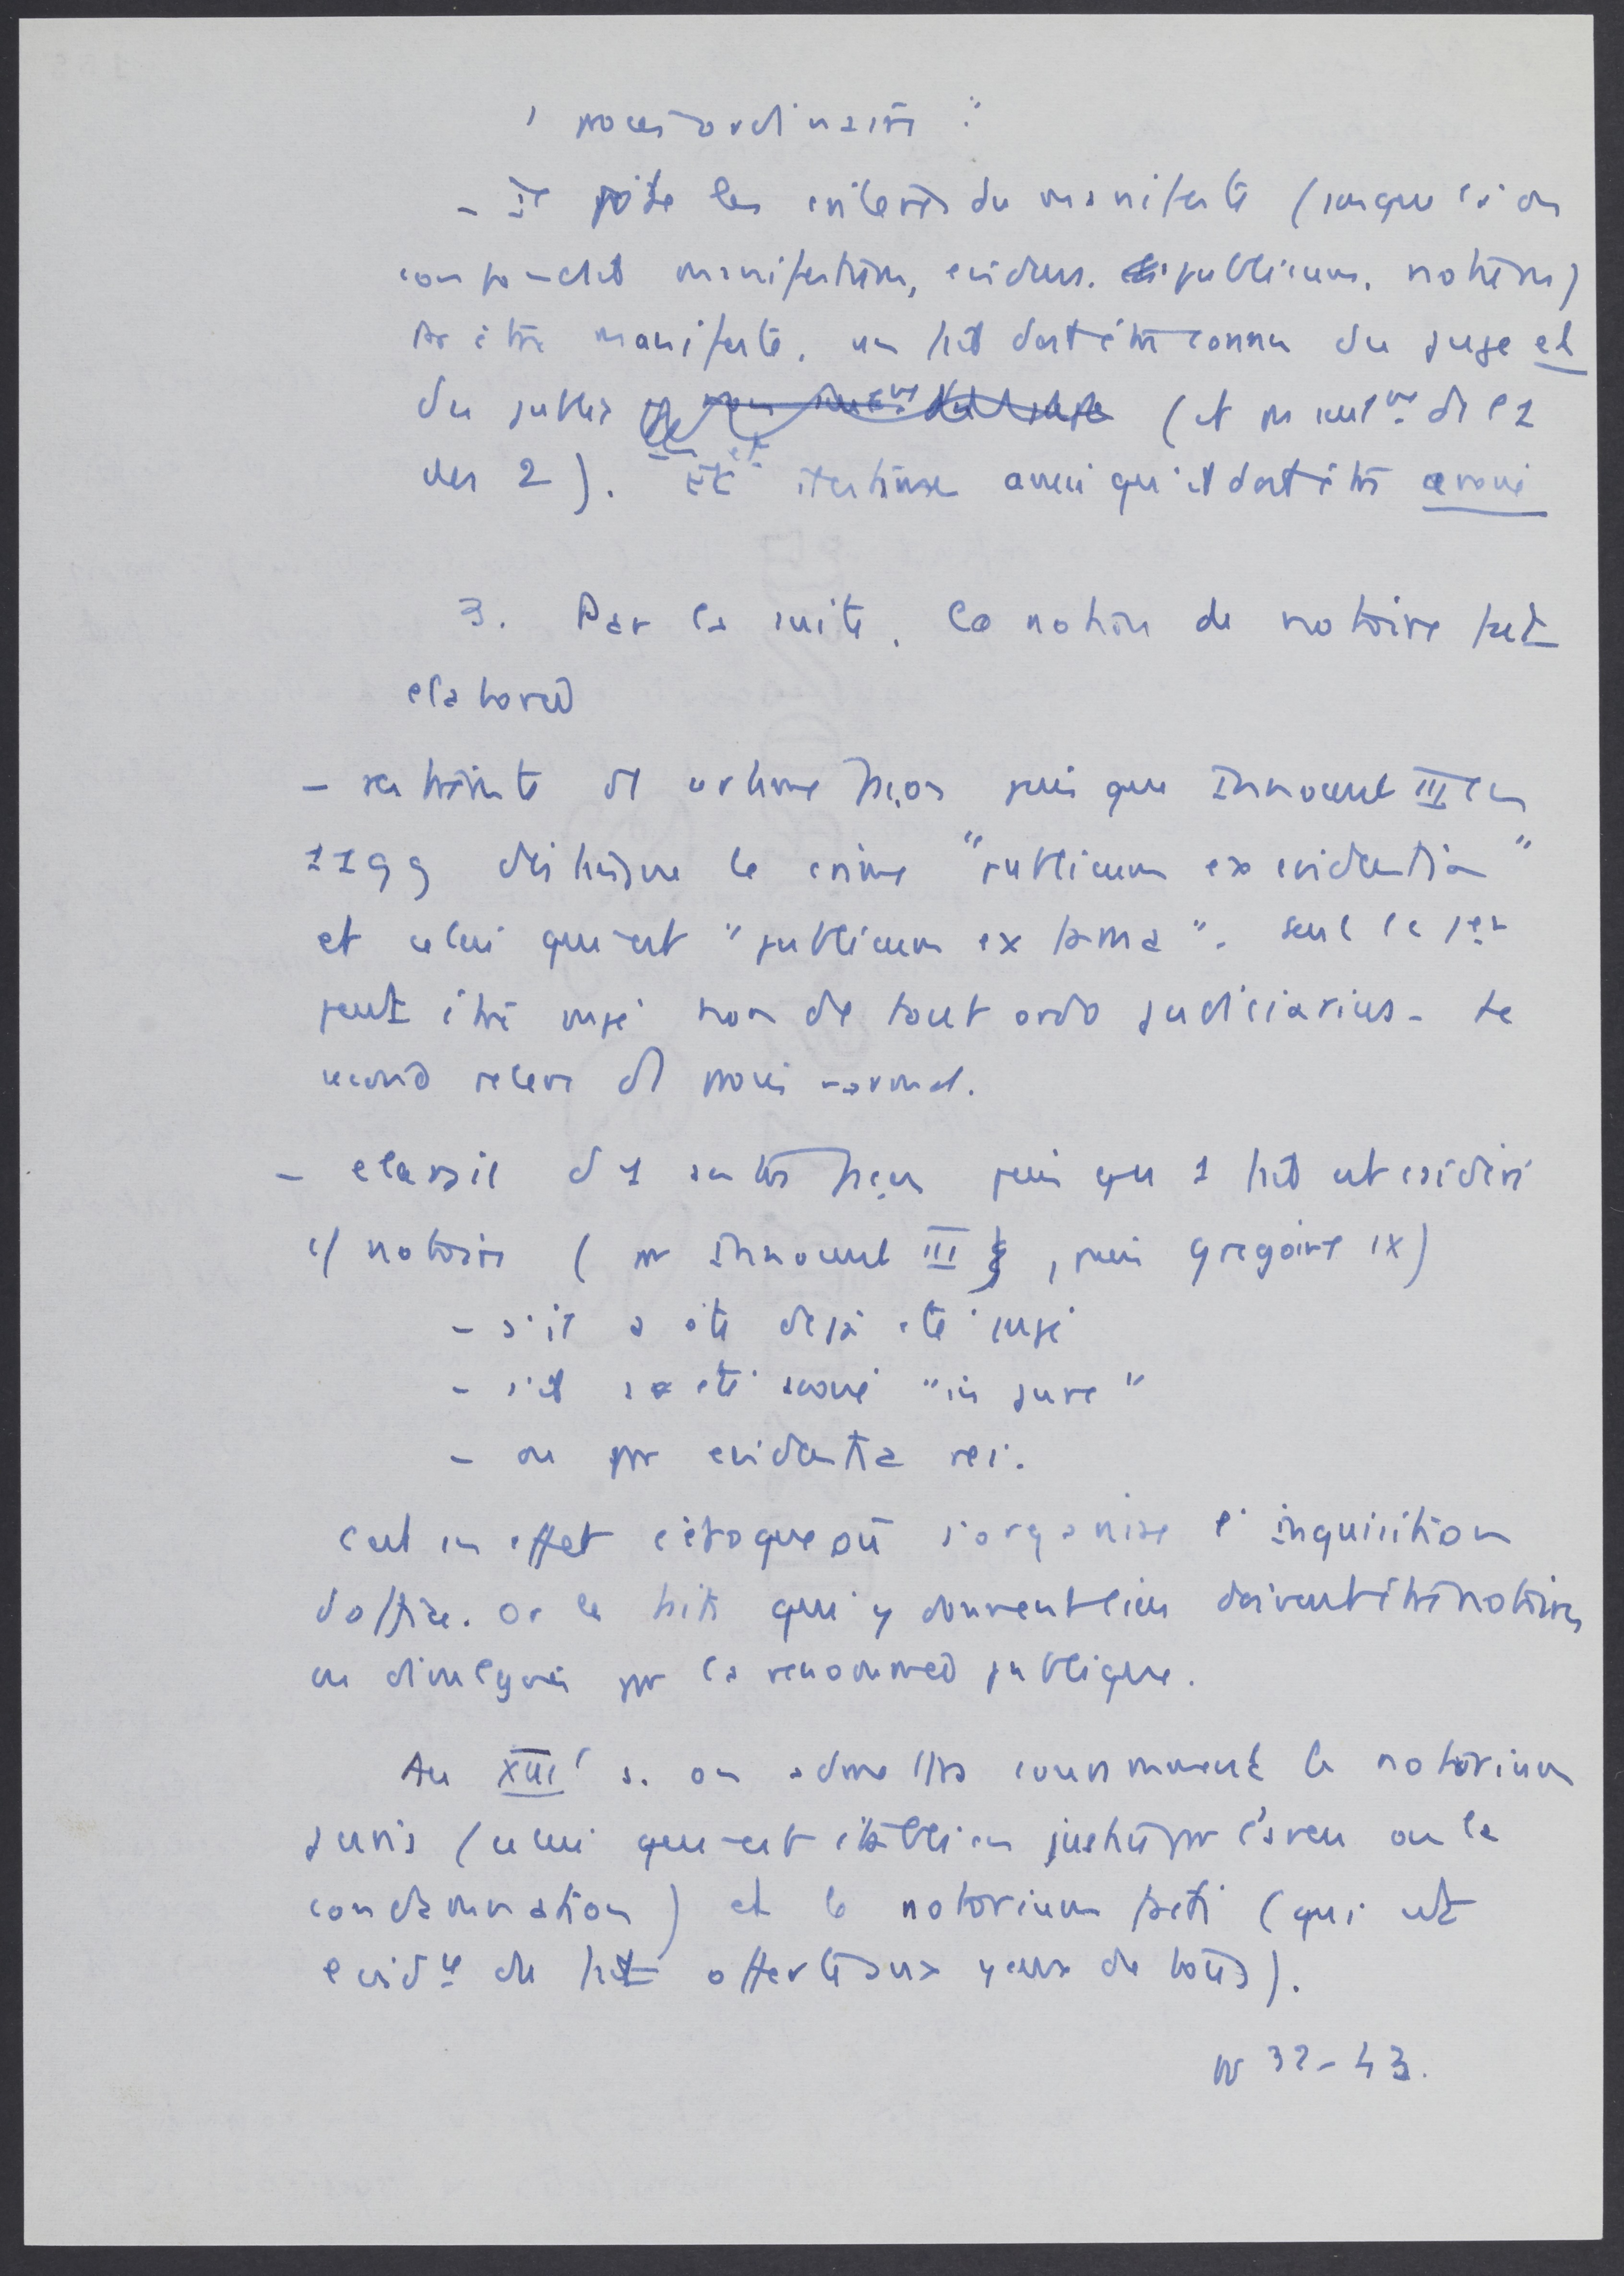 procès ordinaire :
- Il précise les critères du manifeste (jusque là on
confondait manifestum, evidens, publicum, notorium)
Pr être manifeste, un fait doit être connu du juge et
du public (et pas seult de l'1
des 2). Et il estime aussi qu'il doit être avoué
3. Par la suite, la notion de notoire fut
elaborée
- restreinte d'une certaine façon puisque Innocent III en
1199 distingue le crime "publicum ex evidentia"
et celui qui est "publicum ex fama". Seul le 1er
peut être jugé hors de tout ordo judiciarius. Le
second relève du procès normal.
- élargie d'1 autre façon puisqu'1 fait est considéré
c/ notoire (par Innocent III, puis Gregoire IX)
- s'il a été déjà été jugé
- s'il a été avoué "in jure"
- ou par evidentia rei.
C'est en effet l'époque où s'organise l'inquisition
d'office. Or les faits qui y donnent lieu doivent être notoires
ou divulgués par la renommée publique.
Au XIIIe s. on admettra couramment le notorium
juris (celui qui est établi en justice par l'aveu ou la
condamnation) et le notorium facti (qui est
evidce du fait offerte aux yeux de tous).
p 32-43.